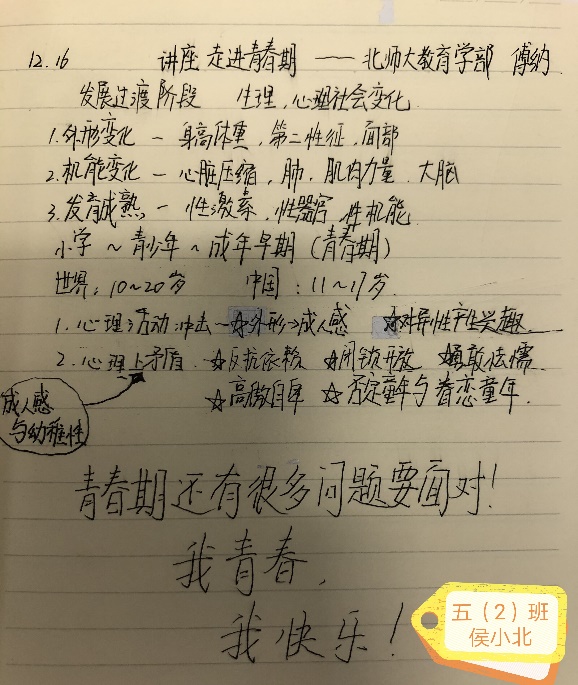 12.16 讲座 走进青春期 —— 北师大教育学部 傅纳
发展过渡阶段 生理,心理社会变化
1.外形变化 - 身高体重,第二性征,面部
2.机能变化 - 心脏压缩,肺,肌肉力量.大脑
3.发育成熟 - 性激素,性器官 性机能
小学 ~ 青少年 ~ 成年早期 (青春期)
世界:10~20岁 中国:11~17岁
1.心理活动冲击 - ☆外形→成人感 ☆对异性产生兴趣
2.心理上矛盾 ☆反抗依赖 ☆闭锁开放 ☆勇敢怯懦
☆高傲自卑 ☆否定童年与眷恋童年
成人感
与幼稚性
青春期还有很多问题要面对!
我青春,
我快乐!
五(2)班
侯小北